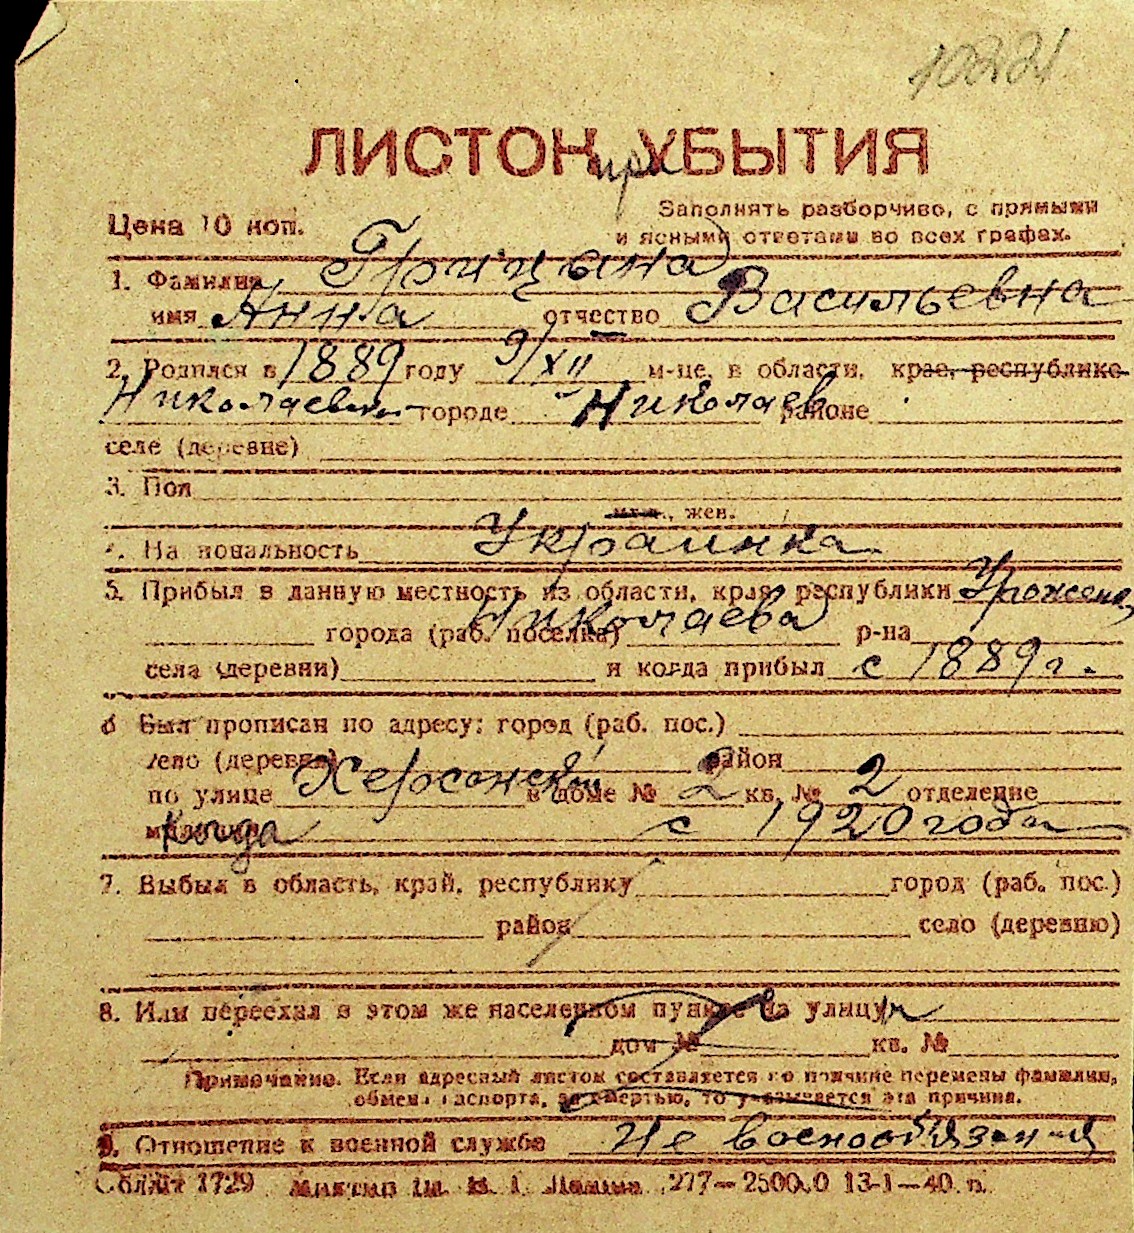 10221
ЛИСТОК при УБЫТИЯ
Цена 10 коп.
Заполнять разборчиво, с прямыми
и ясными ответами во всех графах.
1. Фамилия Грицына
имя Анна отчество Васильевна
2. Родился в 1889 году 9/XII м-це, в области, крае, республике
Николаевской городе Николаев районе
селе (деревне)
3. Пол
муж., жен.
4. Национальность Украинка
5. Прибыл в данную местность из области, края, республики Урожен.
Николаева города (раб. поселка) р-на
села (деревни) и когда прибыл с 1889 г.
6 Был прописан по адресу: город (раб. пос.)
село (деревня) район
по улице Херсонской в доме № 2 кв. № 2 отделение
милиции Когда с 1920 года
7. Выбыл в область, край, республику город (раб. пос.)
район село (деревню)
8. Или переехал в этом же населенном пункте на улицу
дом № кв. №
Примечание. Если адресный листок составляется по причине перемены фамилии,
обмена паспорта, за смертью, то указывается эта причина.
9. Отношение к военной службе Не военнообязаная
Обллит 1729 им. В. И. Ленина 277—25000 13-1—40 г.